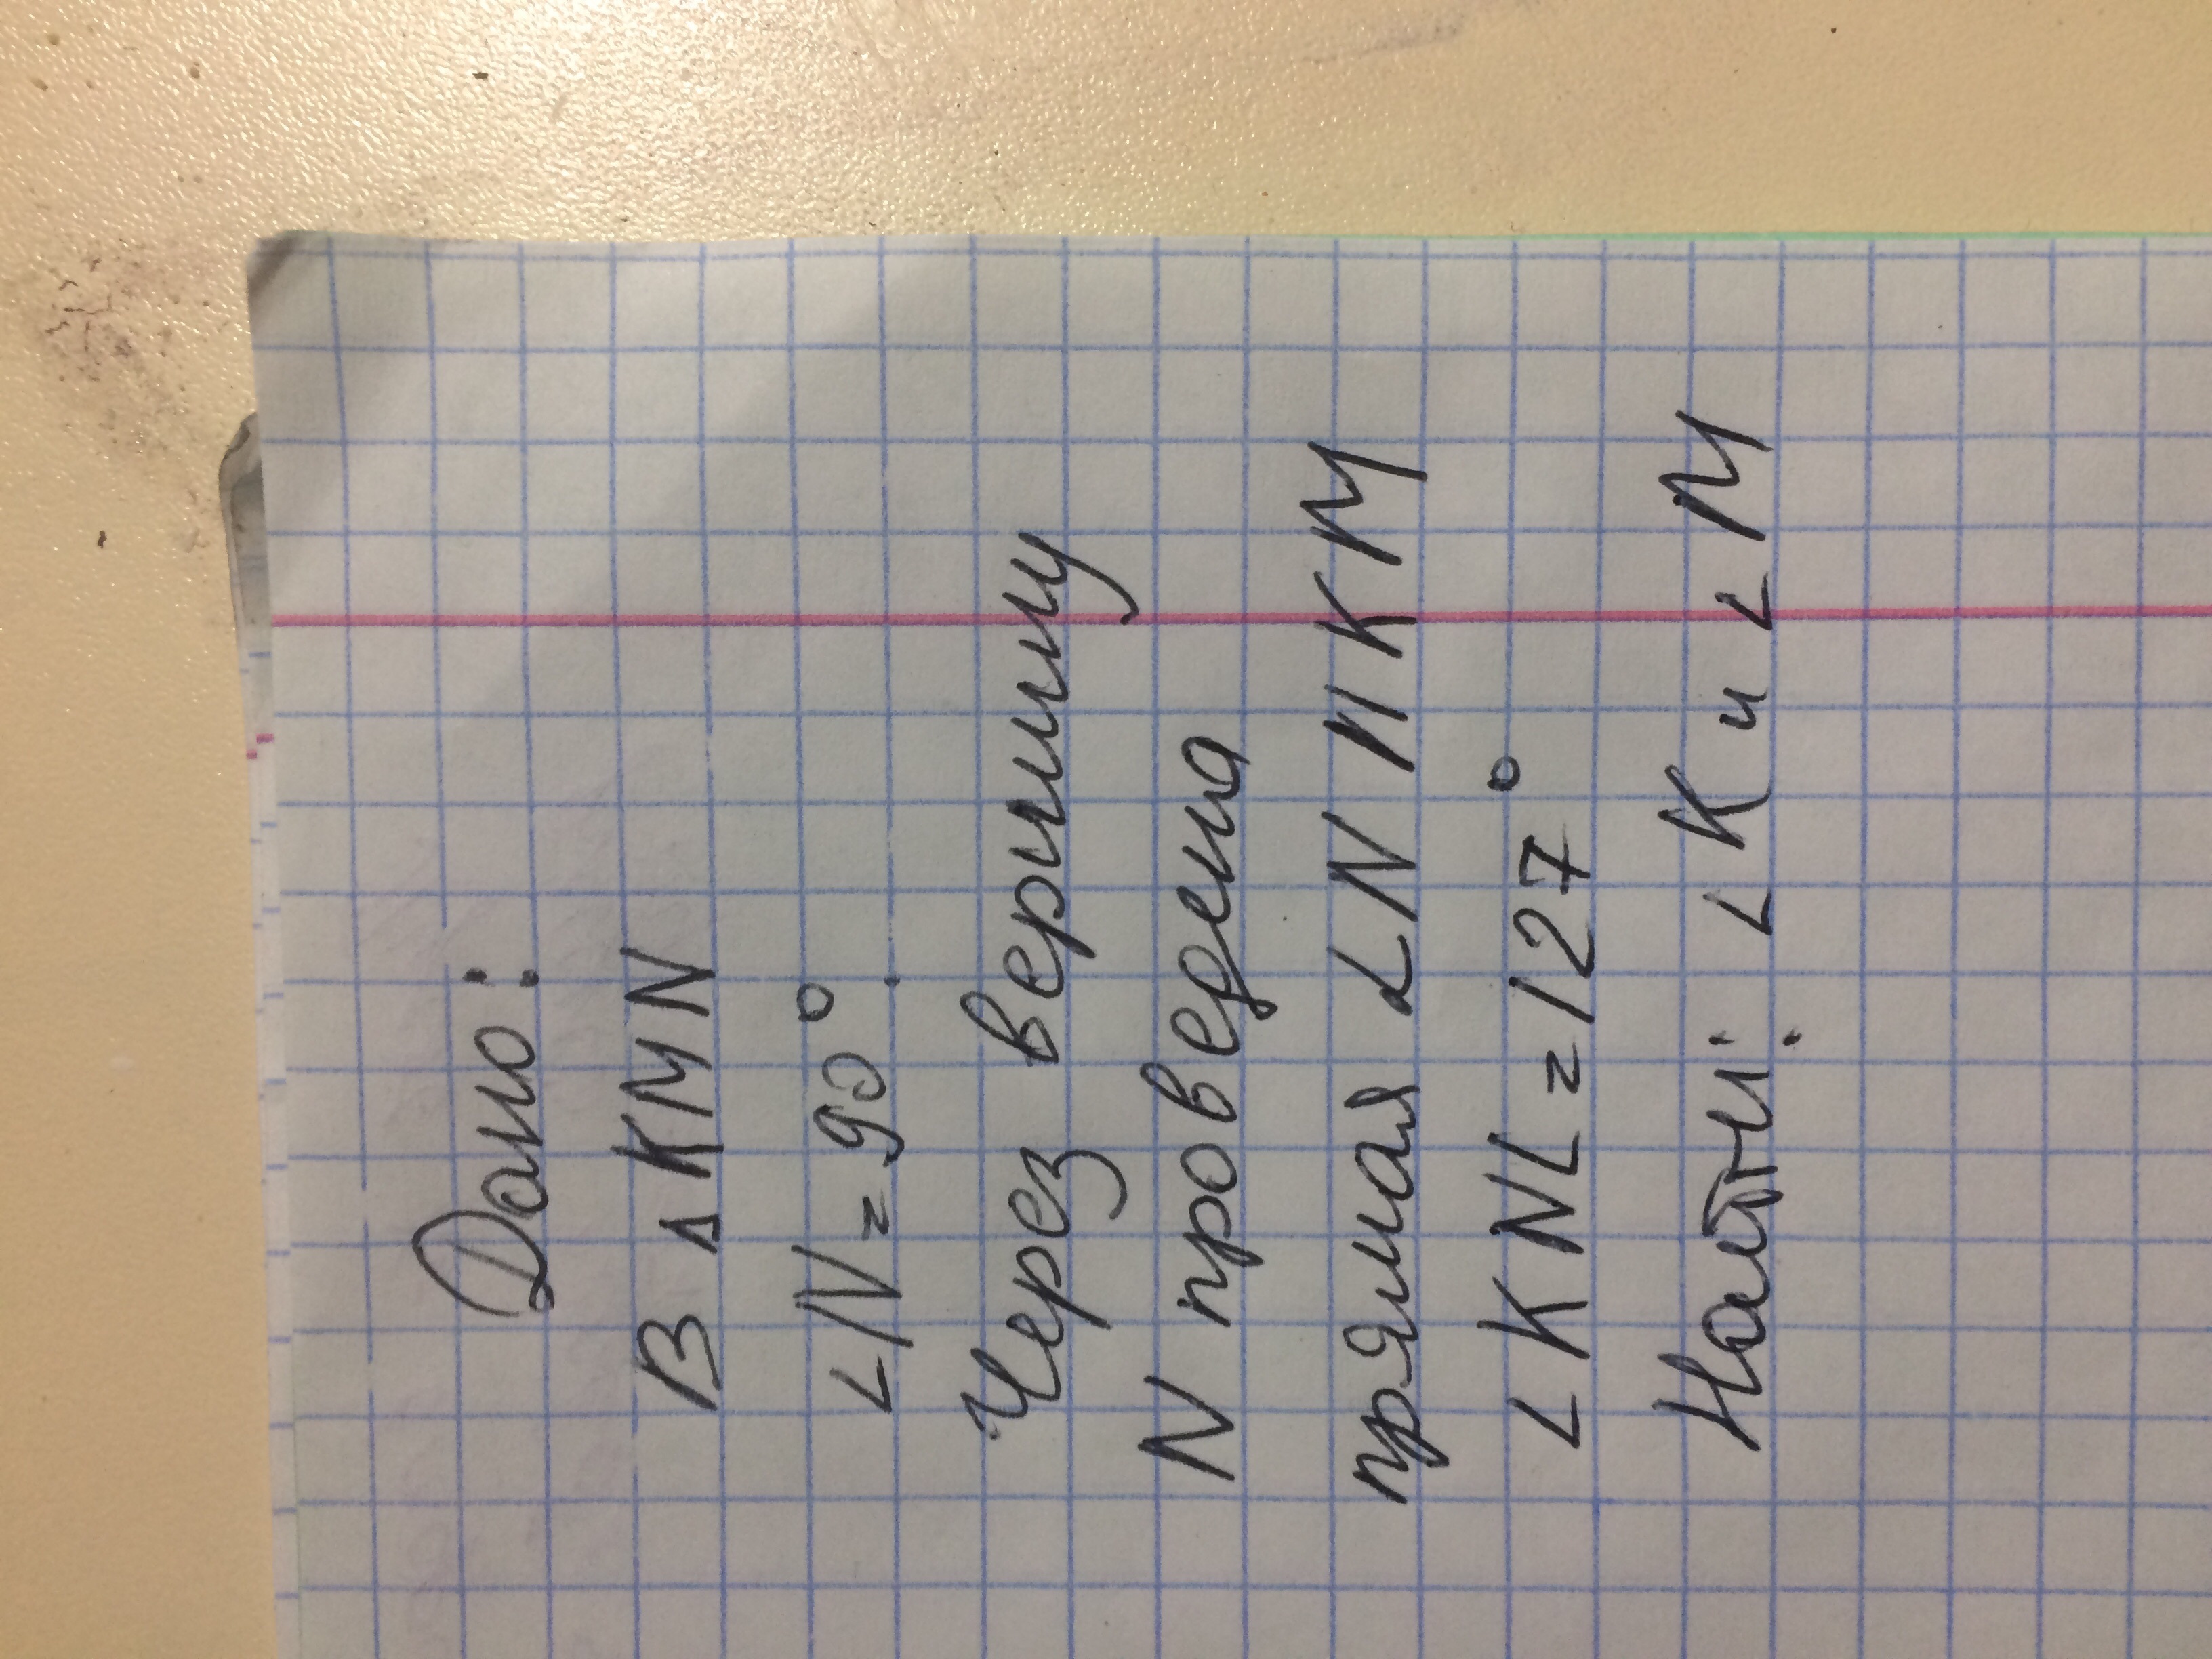 Дано:
В △ KMN
∠N = 90°.
Через вершину
N проведена
прямая LN || KM
∠KNL = 127°
Найти: ∠K и ∠M